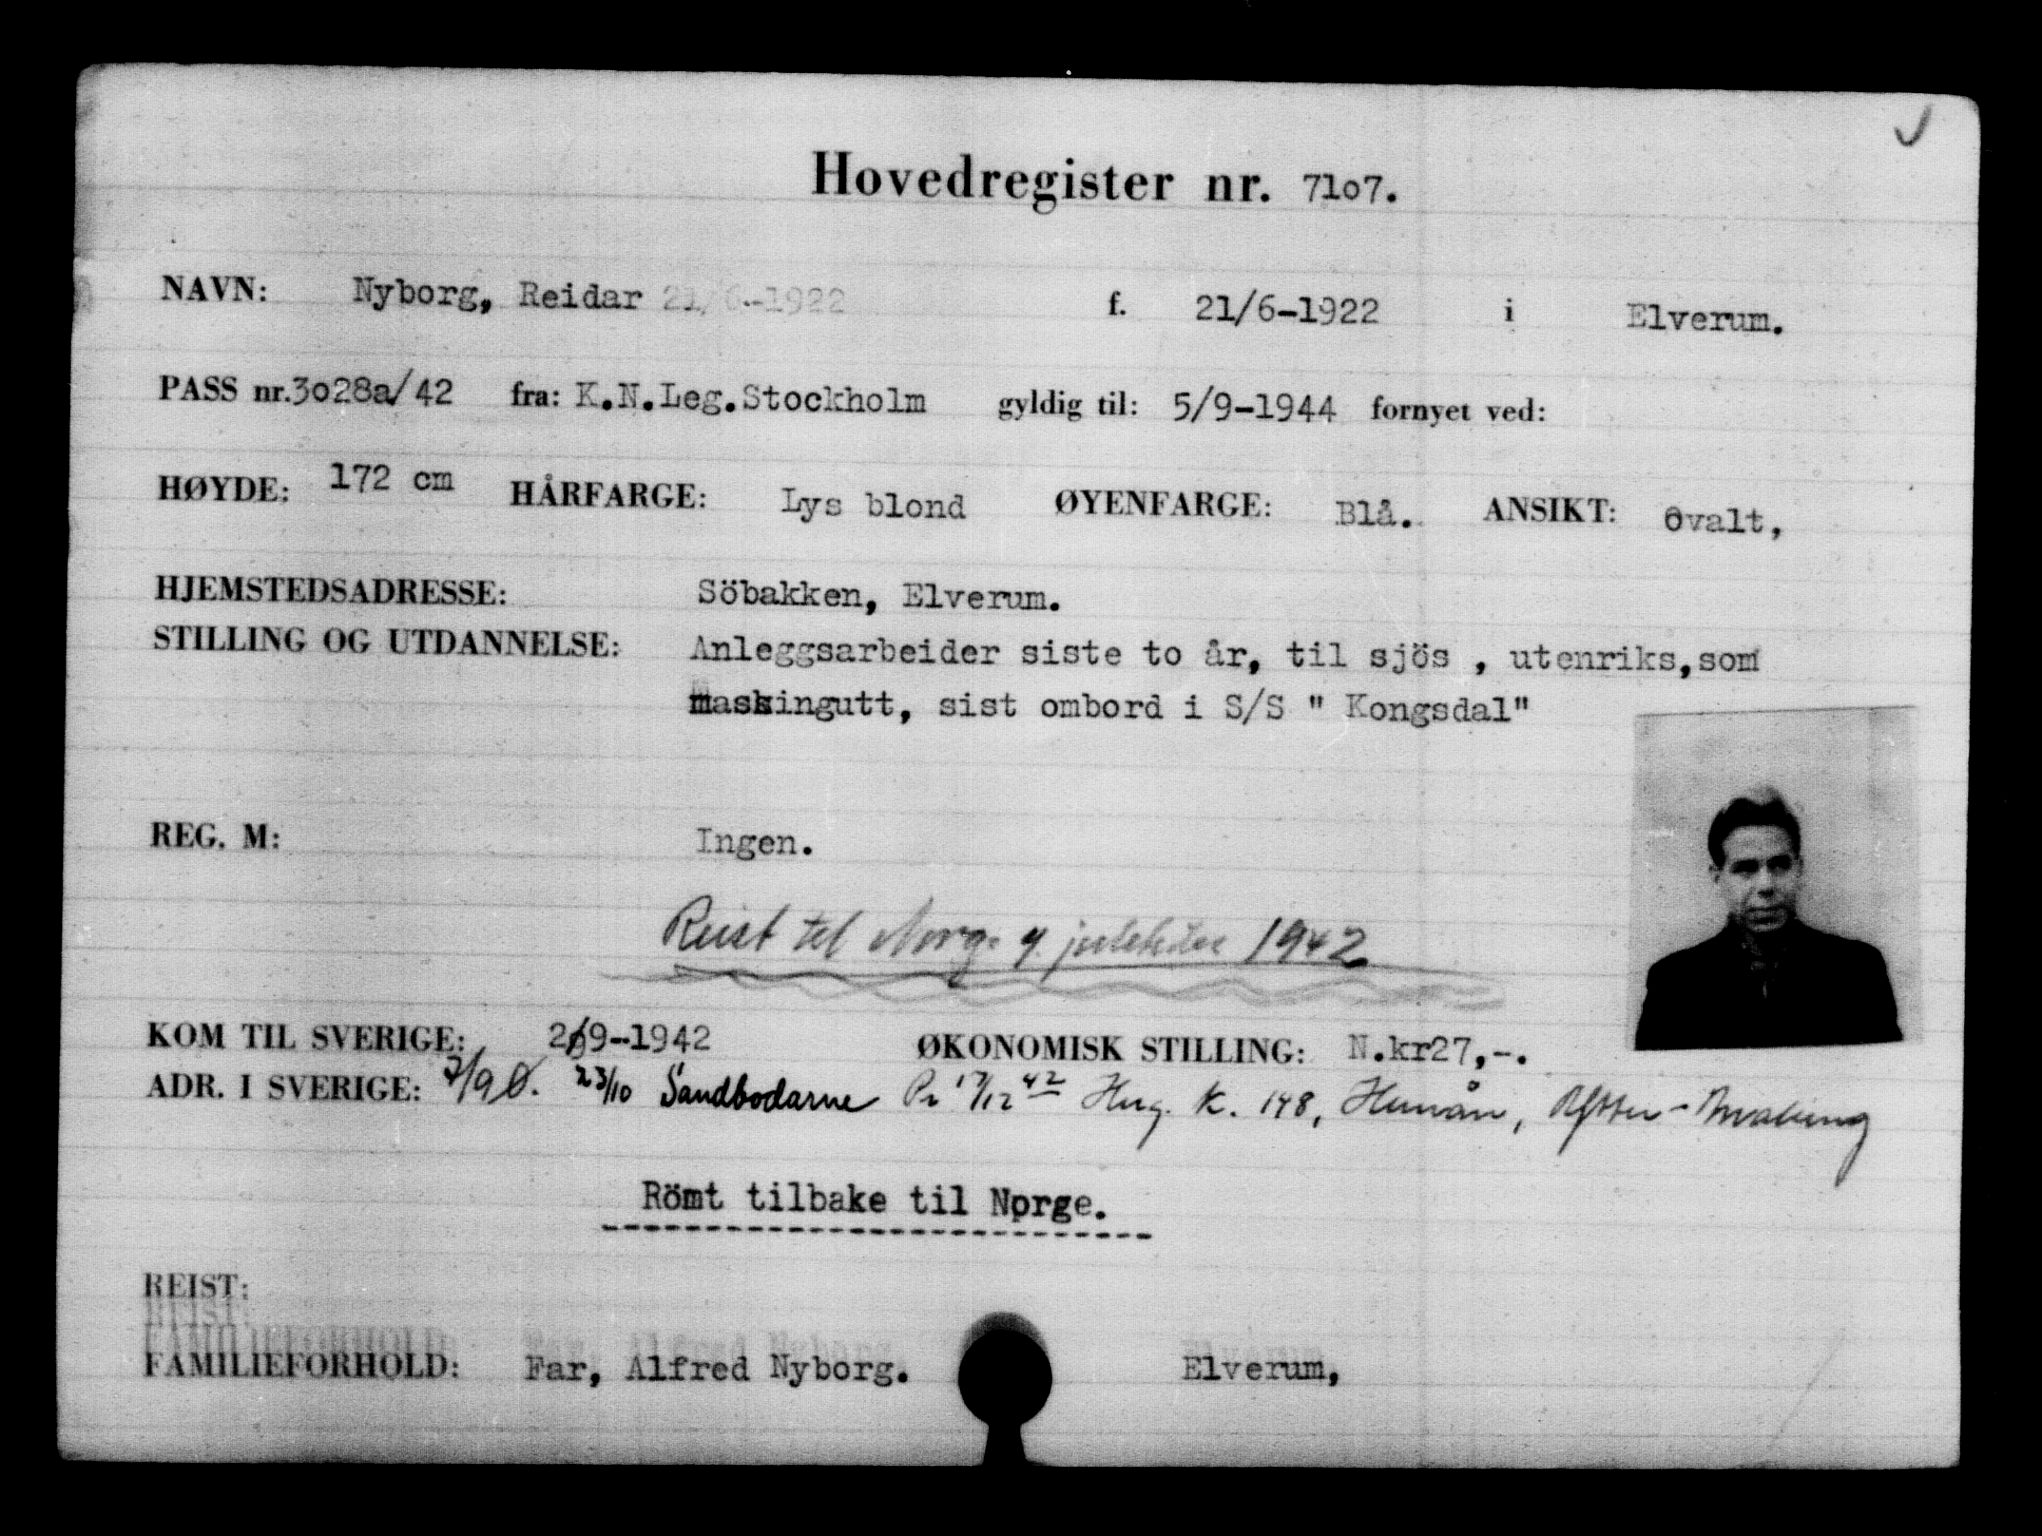 Hovedregister nr. 7107.
NAVN: Nyborg, Reidar 21/6-1922 f. 21/6-1922 i Elverum.
PASS nr. 3028a/42 fra: K.N.Leg.Stockholm gyldig til: 5/9-1944 fornyet ved:
HØYDE: 172 cm HÅRFARGE: Lys blond ØYENFARGE: Blå. ANSIKT: Ovalt,
HJEMSTEDSADRESSE: Söbakken, Elverum.
STILLING OG UTDANNELSE: Anleggsarbeider siste to år, til sjös , utenriks,som
maskingutt, sist ombord i S/S " Kongsdal"
REG. M: Ingen.
Reist til Norge 1942
KOM TIL SVERIGE: 2/9-1942 ØKONOMISK STILLING: N.kr27,-.
ADR. I SVERIGE: 7/9 Ø. 23/10 Sandbodarne Pr 17/12 42 Hug. K. 148, Hunån,
Römt tilbake til Norge.
REIST:
FAMILIEFORHOLD: Far, Alfred Nyborg. Elverum,